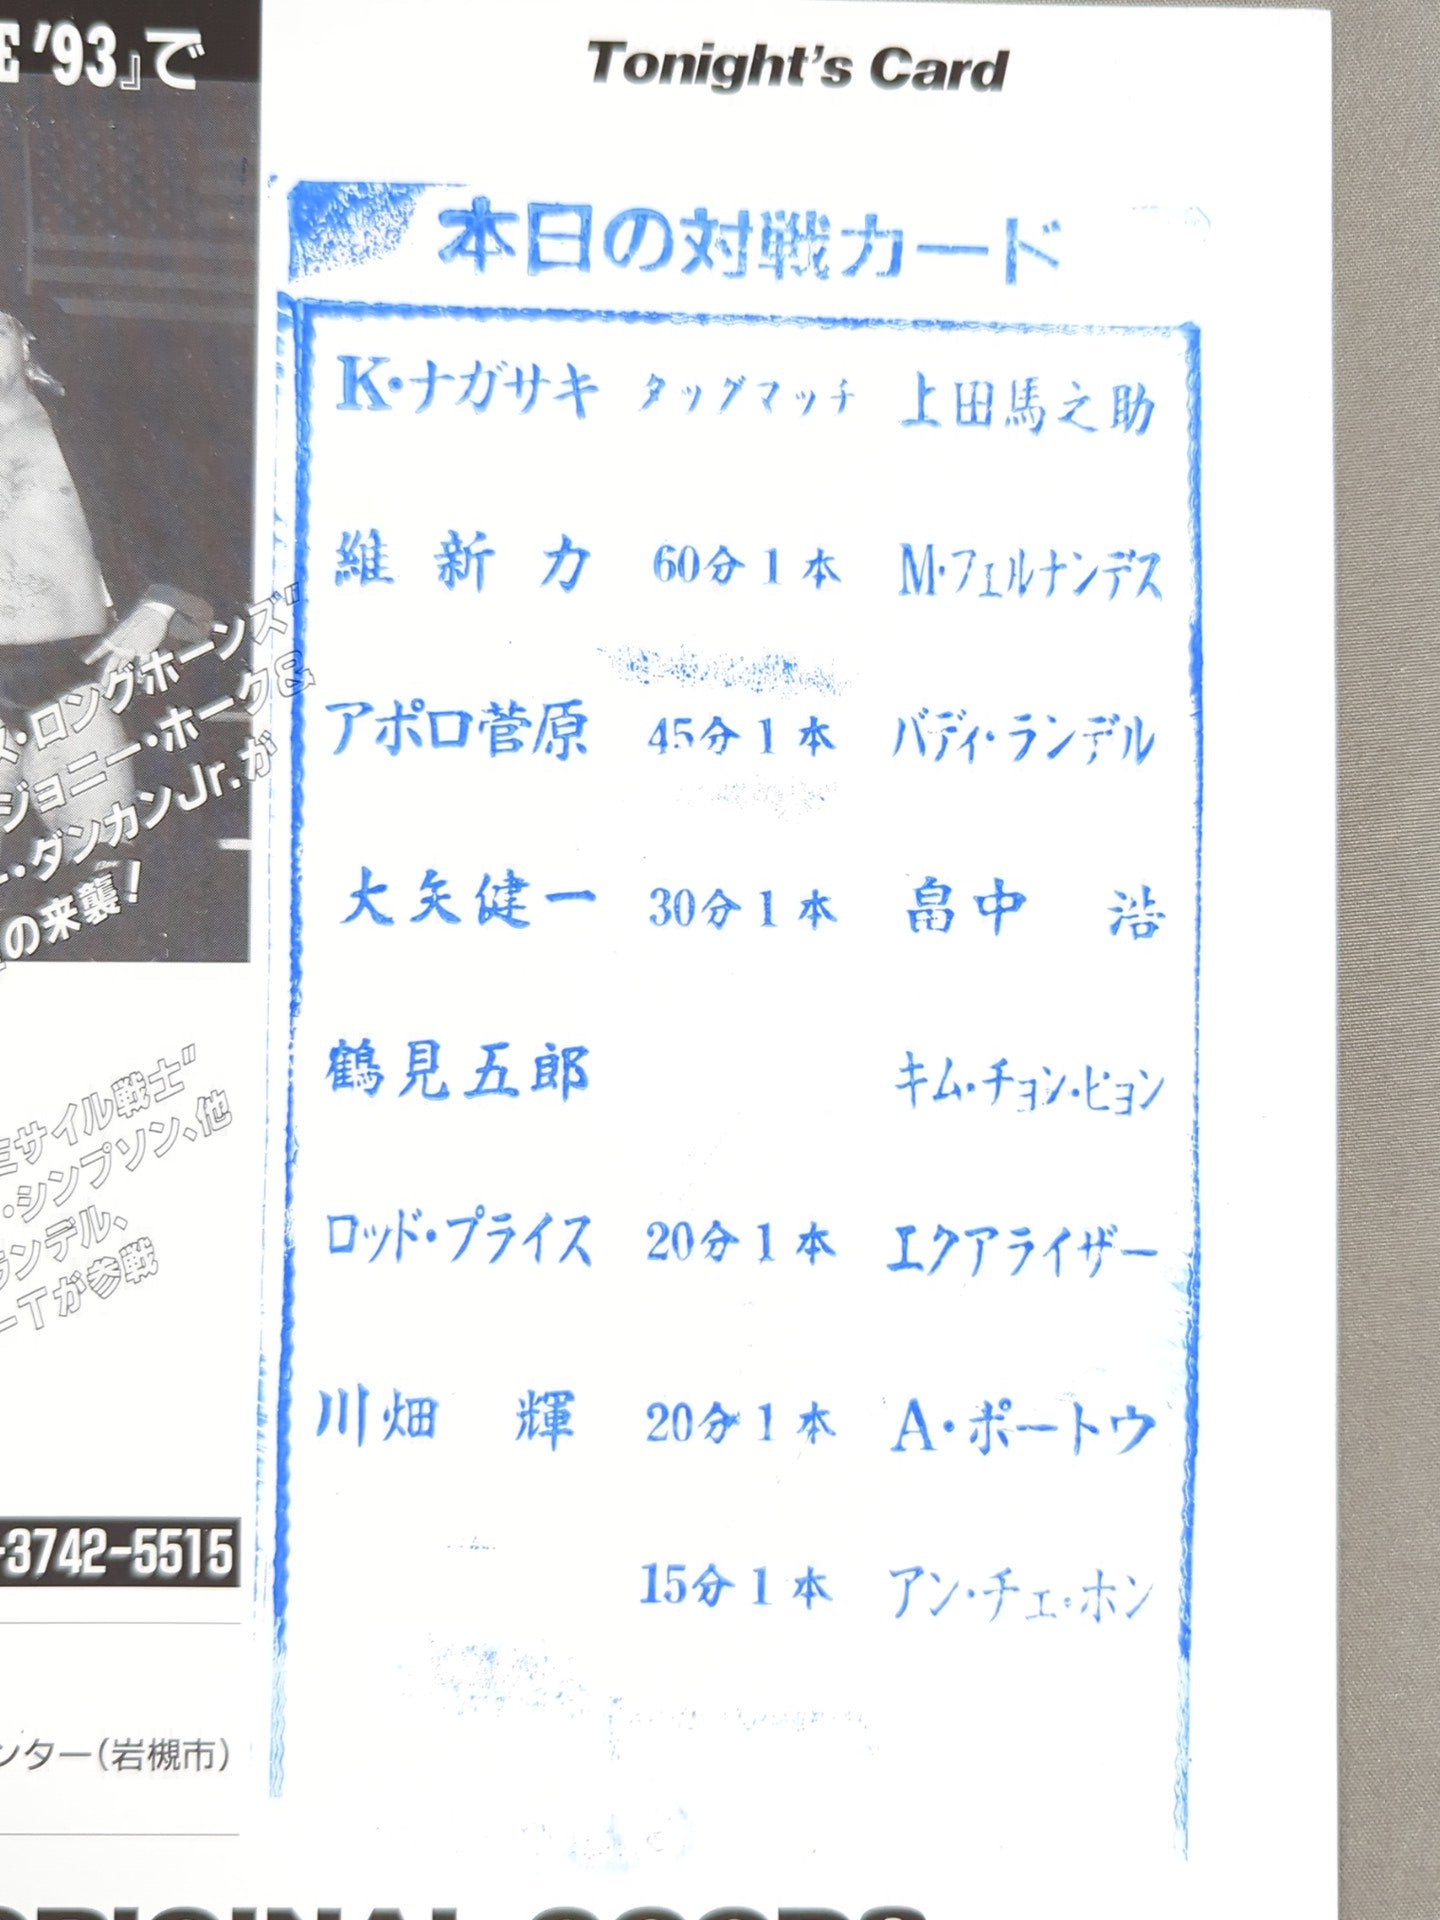 E '93』で
ス・ロングホーンズ"
ジョニー・ホーク&
ー・ダンカンJr.が
の来襲!
ミサイル戦士"
・シンプソン、他
ランデル、
ーTが参戦
-3742-5515
ンター(岩槻市)
Tonight's Card
本日の対戦カード
K・ナガサキ タッグマッチ 上田馬之助
維新力 60分1本 M・フェルナンデス
アポロ菅原 45分1本 バディ・ランデル
大矢健一 30分1本 畠中 浩
鶴見五郎 キム・チョン・ピョン
ロッド・プライス 20分1本 エクアライザー
川畑 輝 20分1本 A・ポートウ
15分1本 アン・チェ・ホン
ORIGINAL GOODS